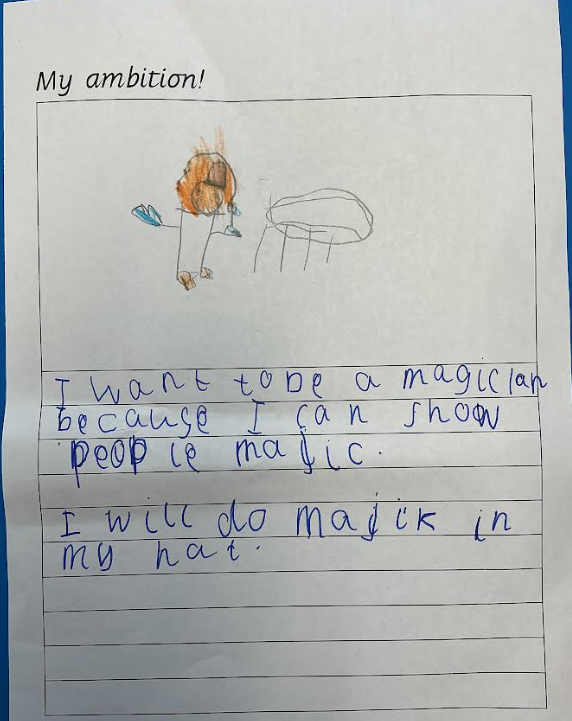 My ambition!
I want to be a magician
because I can show
people majic.
I will do majik in
my hat.